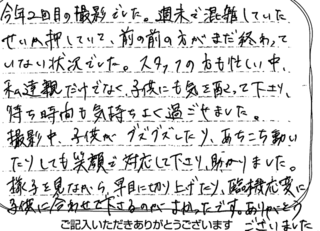 今年2回目の撮影でした。週末で混雑していた
せいか押していて、前の前の方がまだ終わって
いない状況でした。スタッフの方も忙しい中、
私達親だけでなく、子供にも気を配って下さり、
待ち時間も気持ちよく過ごせました。
撮影中、子供がグズグズしたり、あちこち動い
たりしても笑顔で対応して下さり、助かりました。
様子を見ながら、早目に切り上げたり、臨機応変に
子供に合わせて下さるのがよかったです。ありがとう
ございました
ご記入いただきありがとうございます